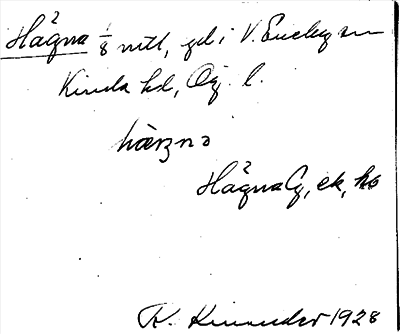 Hågna 1/8 mtl, gd i V. Eneby sn
Kinda hd, Ög. l.
Hågna Cg, ek, ho
K. Kinander 1928